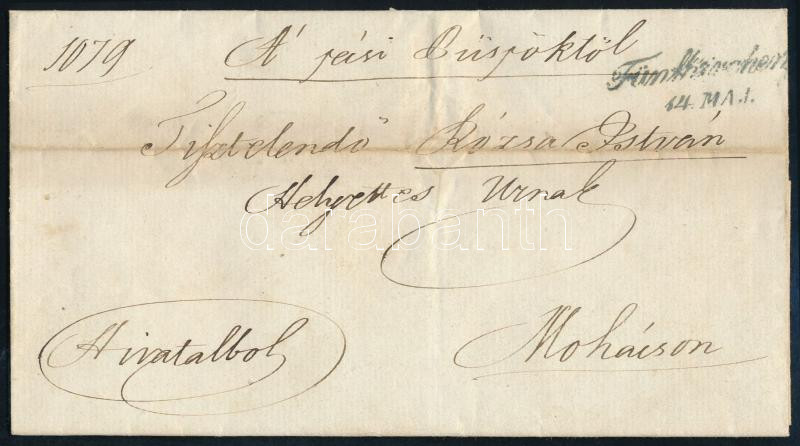 1079 A' pési Püspöktöl
Fünfkirchen
14. MAI.
Tisztelendő Rózsa István
Helyettes Urnak
darabanth
Hivatalbol
Mohácson